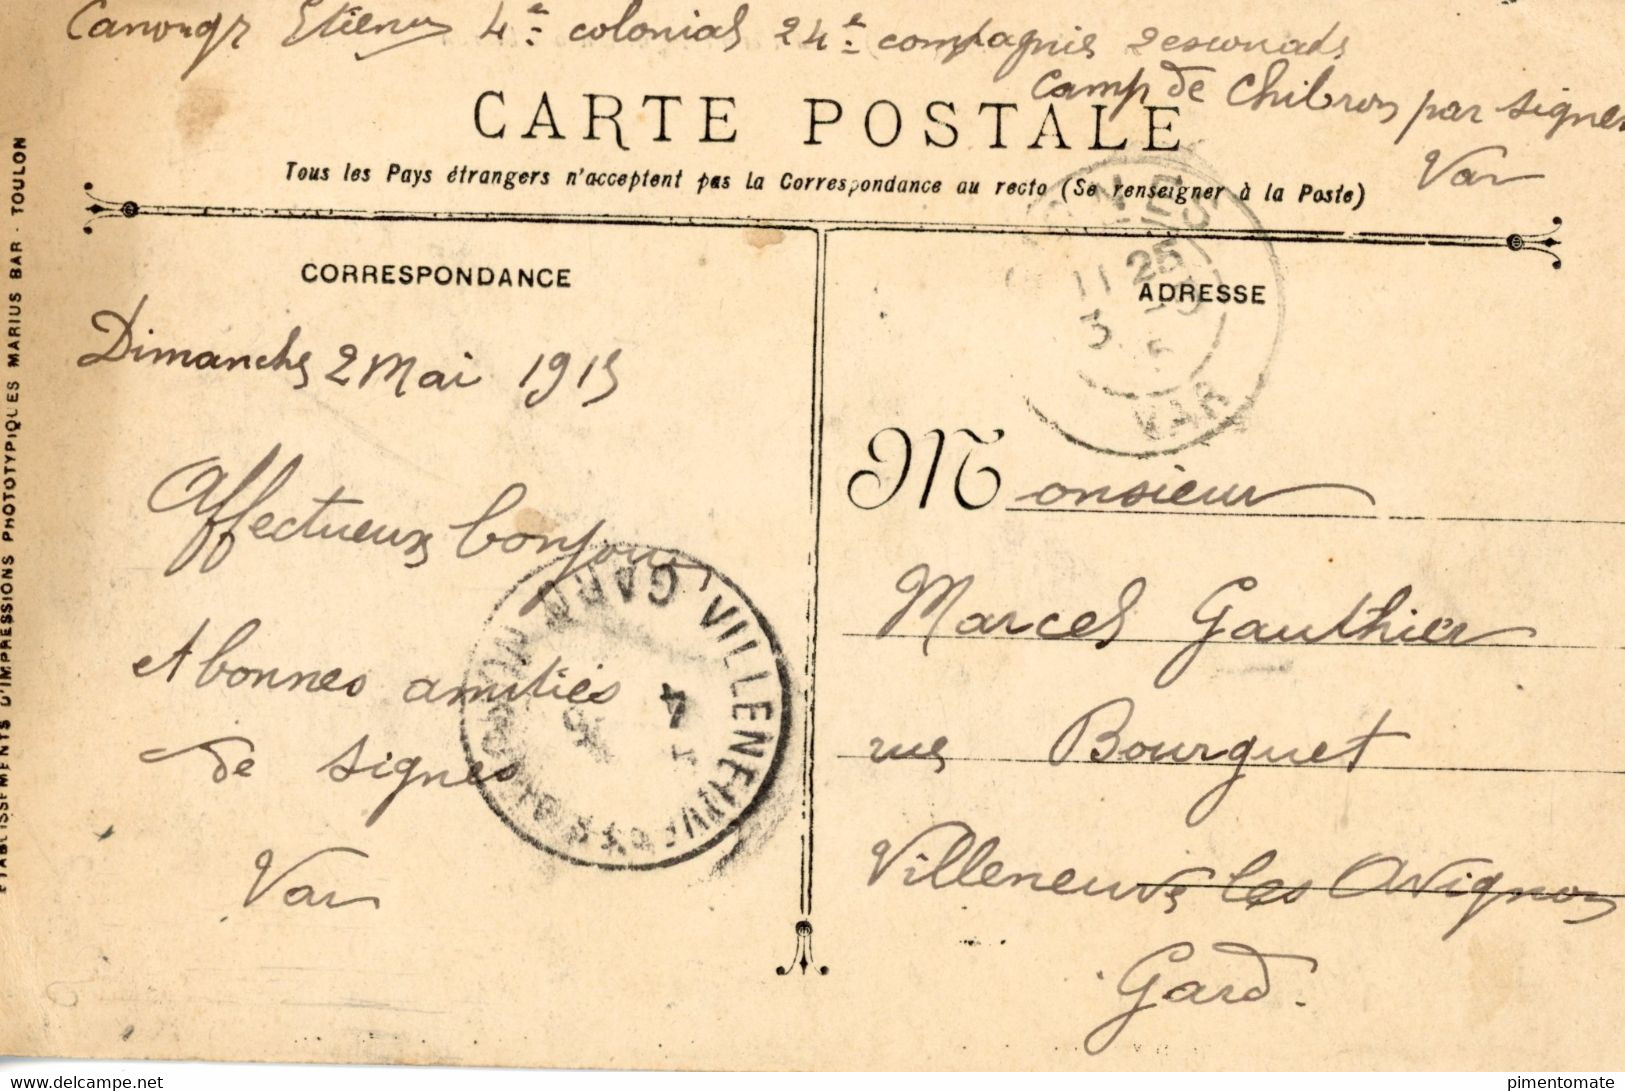 Canonge Etienne 4e colonial 24e compagnie 2 escouade
Camp de Chibron par signes
Var
CARTE POSTALE
Tous les Pays étrangers n'acceptent pas la Correspondance au recto (Se renseigner à la Poste)
CORRESPONDANCE
ADRESSE
11 25
3 5
VAR
Dimanche 2 Mai 1915
Affectueux bonjour
et bonnes amitiés
de signes
Var
VILLENEUVE
GARD
4
Monsieur
Marcel Gauthier
rue Bourguet
Villeneuve les Avignon
Gard.
ETABLISSEMENTS D'IMPRESSIONS PHOTOTYPIQUES MARIUS BAR - TOULON